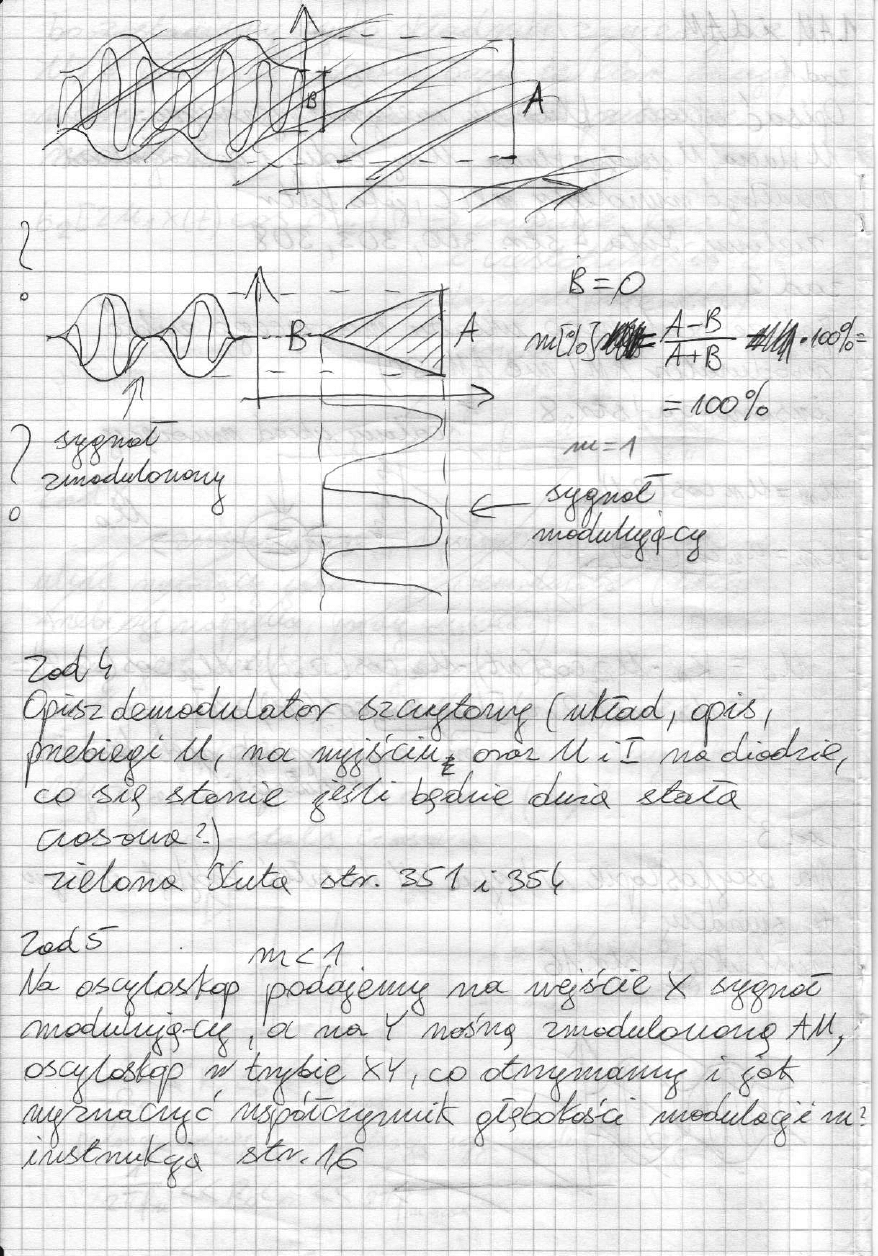 B
A
?
B = 0
B
A
m[%] = (A-B)/(A+B) · 100% =
= 100%
m = 1
sygnał
zmodulowany
?
sygnał
modulujący
Zad 4
Opisz demodulator szczytowy (układ, opis,
przebiegi U, na wyjściu, oraz U i I na diodzie,
co się stanie jeśli będzie duża stała
czasowa?)
zielona Kuta str. 351 i 354
Zad 5
m < 1
Na oscyloskop podajemy na wejście X sygnał
modulujący, a na Y nośną zmodulowaną AM,
oscyloskop w trybie XY, co otrzymamy i jak
wyznaczyć współczynnik głębokości modulacji m?
instrukcja str. 16